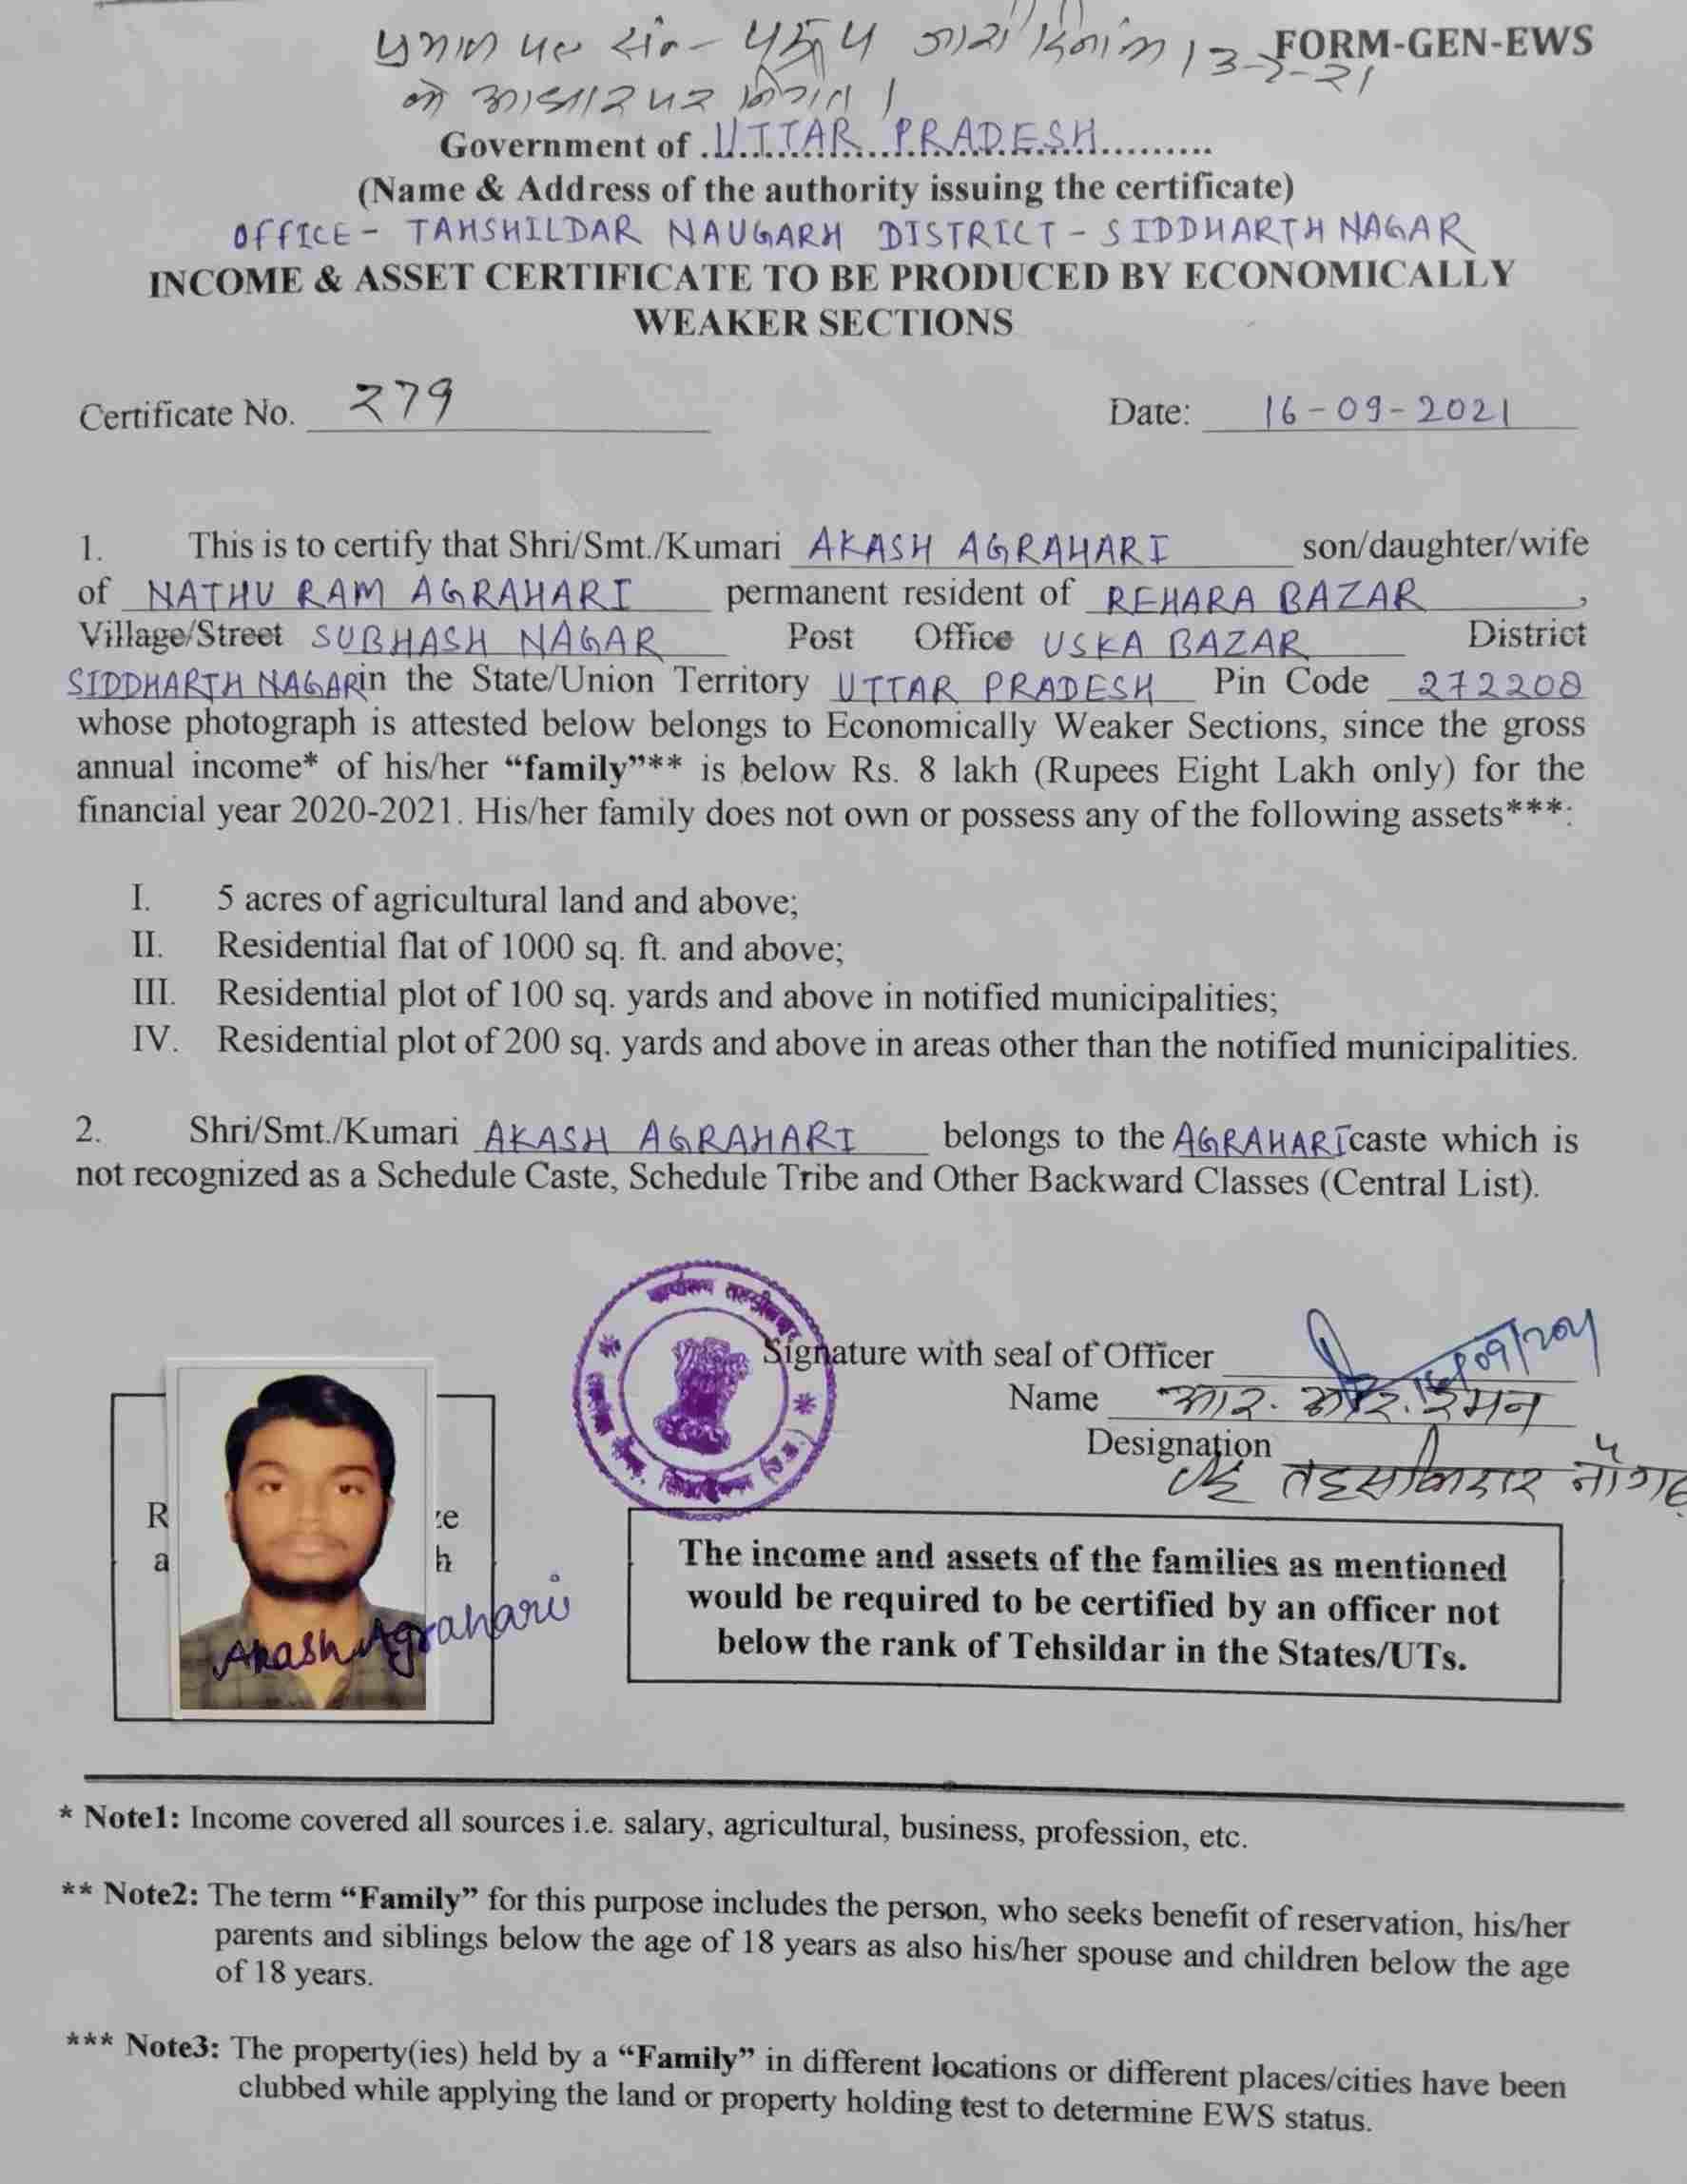 प्रमाण पत्र सं०- जारी दिनांक 13-
FORM-GEN-EWS
के आधार पर निर्गत ।
Government of UTTAR PRADESH
(Name & Address of the authority issuing the certificate)
OFFICE - TAHSHILDAR NAUGARH DISTRICT - SIDDHARTH NAGAR
INCOME & ASSET CERTIFICATE TO BE PRODUCED BY ECONOMICALLY
WEAKER SECTIONS
Certificate No. २79 Date: 16-09-2021
1. This is to certify that Shri/Smt./Kumari AKASH AGRAHARI son/daughter/wife
of NATHU RAM AGRAHARI permanent resident of REHARA BAZAR,
Village/Street SUBHASH NAGAR Post Office USKA BAZAR District
SIDDHARTH NAGAR in the State/Union Territory UTTAR PRADESH Pin Code 272208
whose photograph is attested below belongs to Economically Weaker Sections, since the gross
annual income* of his/her “family”** is below Rs. 8 lakh (Rupees Eight Lakh only) for the
financial year 2020-2021. His/her family does not own or possess any of the following assets***:
I. 5 acres of agricultural land and above;
II. Residential flat of 1000 sq. ft. and above;
III. Residential plot of 100 sq. yards and above in notified municipalities;
IV. Residential plot of 200 sq. yards and above in areas other than the notified municipalities.
2. Shri/Smt./Kumari AKASH AGRAHARI belongs to the AGRAHARI caste which is
not recognized as a Schedule Caste, Schedule Tribe and Other Backward Classes (Central List).
कार्यालय तहसीलदार
Signature with seal of Officer 16/09/2021
Name आर. आर. रमन
Designation तहसीलदार नौगढ़
R ze
a h
Akash Agrahari
The income and assets of the families as mentioned
would be required to be certified by an officer not
below the rank of Tehsildar in the States/UTs.
* Note1: Income covered all sources i.e. salary, agricultural, business, profession, etc.
** Note2: The term “Family” for this purpose includes the person, who seeks benefit of reservation, his/her
parents and siblings below the age of 18 years as also his/her spouse and children below the age
of 18 years.
*** Note3: The property(ies) held by a “Family” in different locations or different places/cities have been
clubbed while applying the land or property holding test to determine EWS status.